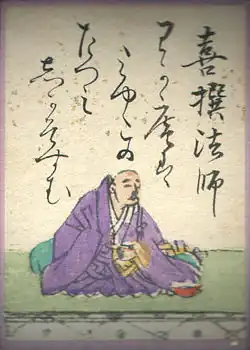 喜撰法師
わか庵は
みやこの
たつみ
志かそすむ